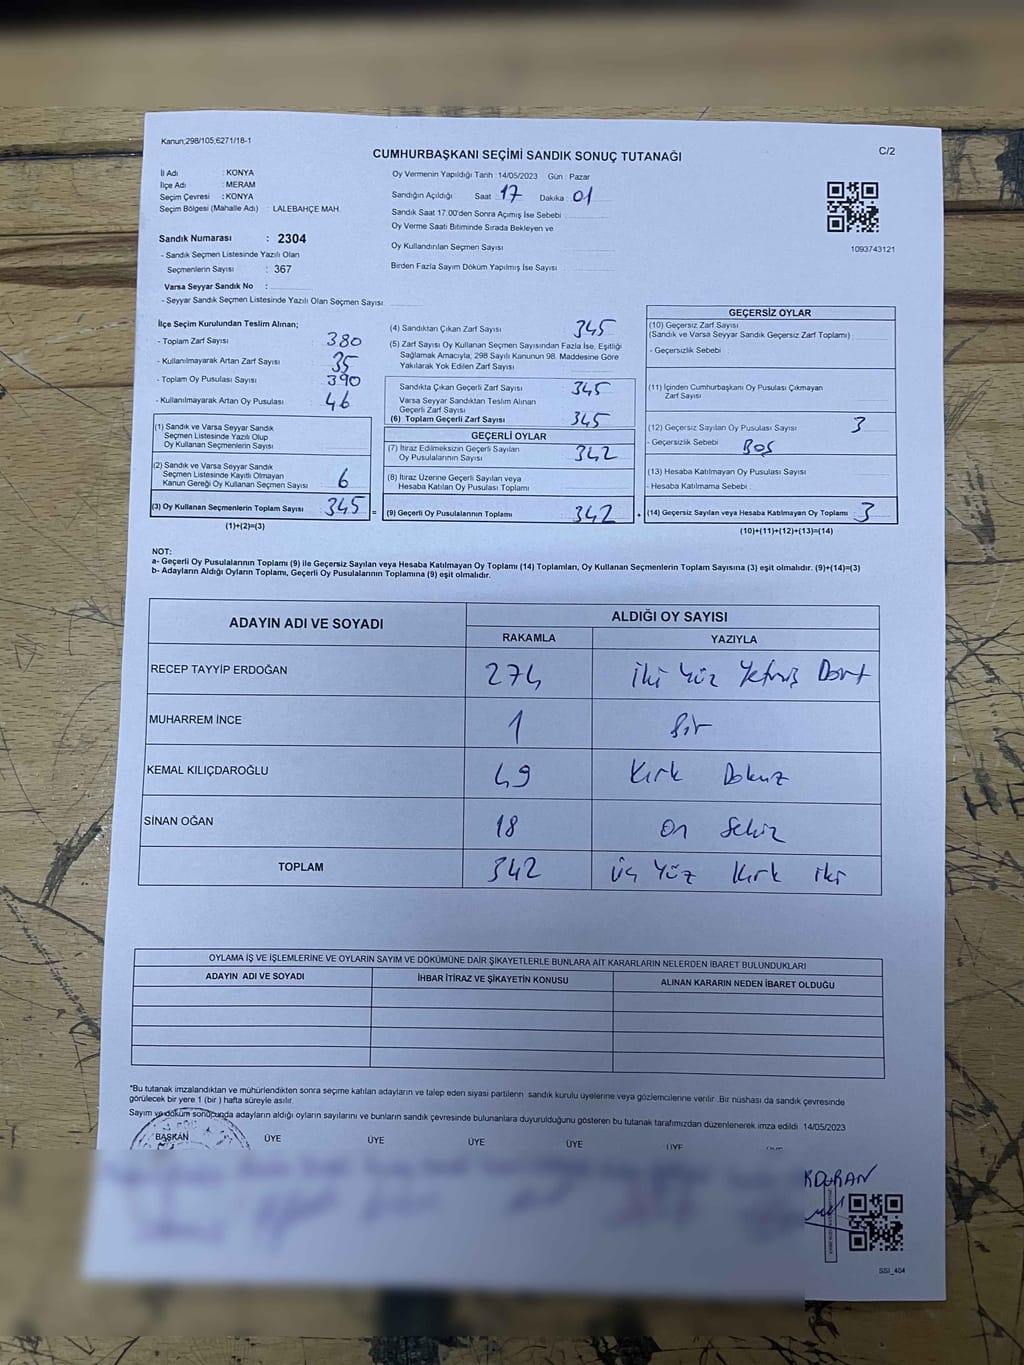 Kanun;298/105,6271/18-1
C/2
CUMHURBAŞKANI SEÇİMİ SANDIK SONUÇ TUTANAĞI
İl Adı : KONYA
İlçe Adı : MERAM
Seçim Çevresi : KONYA
Seçim Bölgesi (Mahalle Adı) : LALEBAHÇE MAH.
Sandık Numarası : 2304
- Sandık Seçmen Listesinde Yazılı Olan
Seçmenlerin Sayısı : 367
Varsa Seyyar Sandık No :
- Seyyar Sandık Seçmen Listesinde Yazılı Olan Seçmen Sayısı
Oy Vermenin Yapıldığı Tarih :14/05/2023 Gün : Pazar
Sandığın Açıldığı Saat 17 Dakika 01
Sandık Saat 17.00'den Sonra Açımış İse Sebebi
Oy Verme Saati Bitiminde Sırada Bekleyen ve
Oy Kullandırılan Seçmen Sayısı
Birden Fazla Sayım Döküm Yapılmış İse Sayısı
1093743121
İlçe Seçim Kurulundan Teslim Alınan;
- Toplam Zarf Sayısı 380
- Kullanılmayarak Artan Zarf Sayısı 35
- Toplam Oy Pusulası Sayısı 390
- Kullanılmayarak Artan Oy Pusulası 46
(1) Sandık ve Varsa Seyyar Sandık
Seçmen Listesinde Yazılı Olup
Oy Kullanan Seçmenlerin Sayısı
(2) Sandık ve Varsa Seyyar Sandık
Seçmen Listesinde Kayıtlı Olmayan
Kanun Gereği Oy Kullanan Seçmen Sayısı 6
(3) Oy Kullanan Seçmenlerin Toplam Sayısı 345 =
(1)+(2)=(3)
(4) Sandıktan Çıkan Zarf Sayısı 345
(5) Zarf Sayısı Oy Kullanan Seçmen Sayısından Fazla İse, Eşitliği
Sağlamak Amacıyla, 298 Sayılı Kanunun 98. Maddesine Göre
Yakılarak Yok Edilen Zarf Sayısı
Sandıkta Çıkan Geçerli Zarf Sayısı 345
Varsa Seyyar Sandıktan Teslim Alınan
Geçerli Zarf Sayısı
(6) Toplam Geçerli Zarf Sayısı 345
GEÇERLİ OYLAR
(7) İtiraz Edilmeksizin Geçerli Sayılan
Oy Pusulalarının Sayısı 342
(8) İtiraz Üzerine Geçerli Sayılan veya
Hesaba Katılan Oy Pusulası Toplamı
(9) Geçerli Oy Pusulalarının Toplamı 342 +
GEÇERSİZ OYLAR
(10) Geçersiz Zarf Sayısı
(Sandık ve Varsa Seyyar Sandık Geçersiz Zarf Toplamı)
- Geçersizlik Sebebi :
(11) İçinden Cumhurbaşkanı Oy Pusulası Çıkmayan
Zarf Sayısı
(12) Geçersiz Sayılan Oy Pusulası Sayısı 3
- Geçersizlik Sebebi BOŞ
(13) Hesaba Katılmayan Oy Pusulası Sayısı
- Hesaba Katılmama Sebebi :
(14) Geçersiz Sayılan veya Hesaba Katılmayan Oy Toplamı 3
(10)+(11)+(12)+(13)=(14)
NOT:
a- Geçerli Oy Pusulalarının Toplamı (9) ile Geçersiz Sayılan veya Hesaba Katılmayan Oy Toplamı (14) Toplamları, Oy Kullanan Seçmenlerin Toplam Sayısına (3) eşit olmalıdır. (9)+(14)=(3)
b- Adayların Aldığı Oyların Toplamı, Geçerli Oy Pusulalarının Toplamına (9) eşit olmalıdır.
ADAYIN ADI VE SOYADI ALDIĞI OY SAYISI
RAKAMLA YAZIYLA
RECEP TAYYİP ERDOĞAN 274 iki Yüz Yetmiş Dört
MUHARREM İNCE 1 Bir
KEMAL KILIÇDAROĞLU 49 Kırk Dokuz
SİNAN OĞAN 18 On Sekiz
TOPLAM 342 üç Yüz Kırk iki
OYLAMA İŞ VE İŞLEMLERİNE VE OYLARIN SAYIM VE DÖKÜMÜNE DAİR ŞİKAYETLERLE BUNLARA AİT KARARLARIN NELERDEN İBARET BULUNDUKLARI
ADAYIN ADI VE SOYADI İHBAR İTİRAZ VE ŞİKAYETİN KONUSU ALINAN KARARIN NEDEN İBARET OLDUĞU
*Bu tutanak imzalandıktan ve mühürlendikten sonra seçime katılan adayların ve talep eden siyasi partilerin sandık kurulu üyelerine veya gözlemcilerine verilir .Bir nüshası da sandık çevresinde
görülecek bir yere 1 (bir ) hafta süreyle asılır.
Sayım ve döküm sonucunda adayların aldığı oyların sayılarını ve bunların sandık çevresinde bulunanlara duyurulduğunu gösteren bu tutanak tarafımızdan düzenlenerek imza edildi 14/05/2023
BAŞKAN ÜYE ÜYE ÜYE ÜYE ÜYE
DURAN
SSI_404